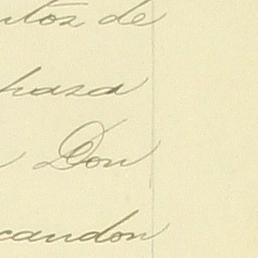 ntos de
haza
Don
candon